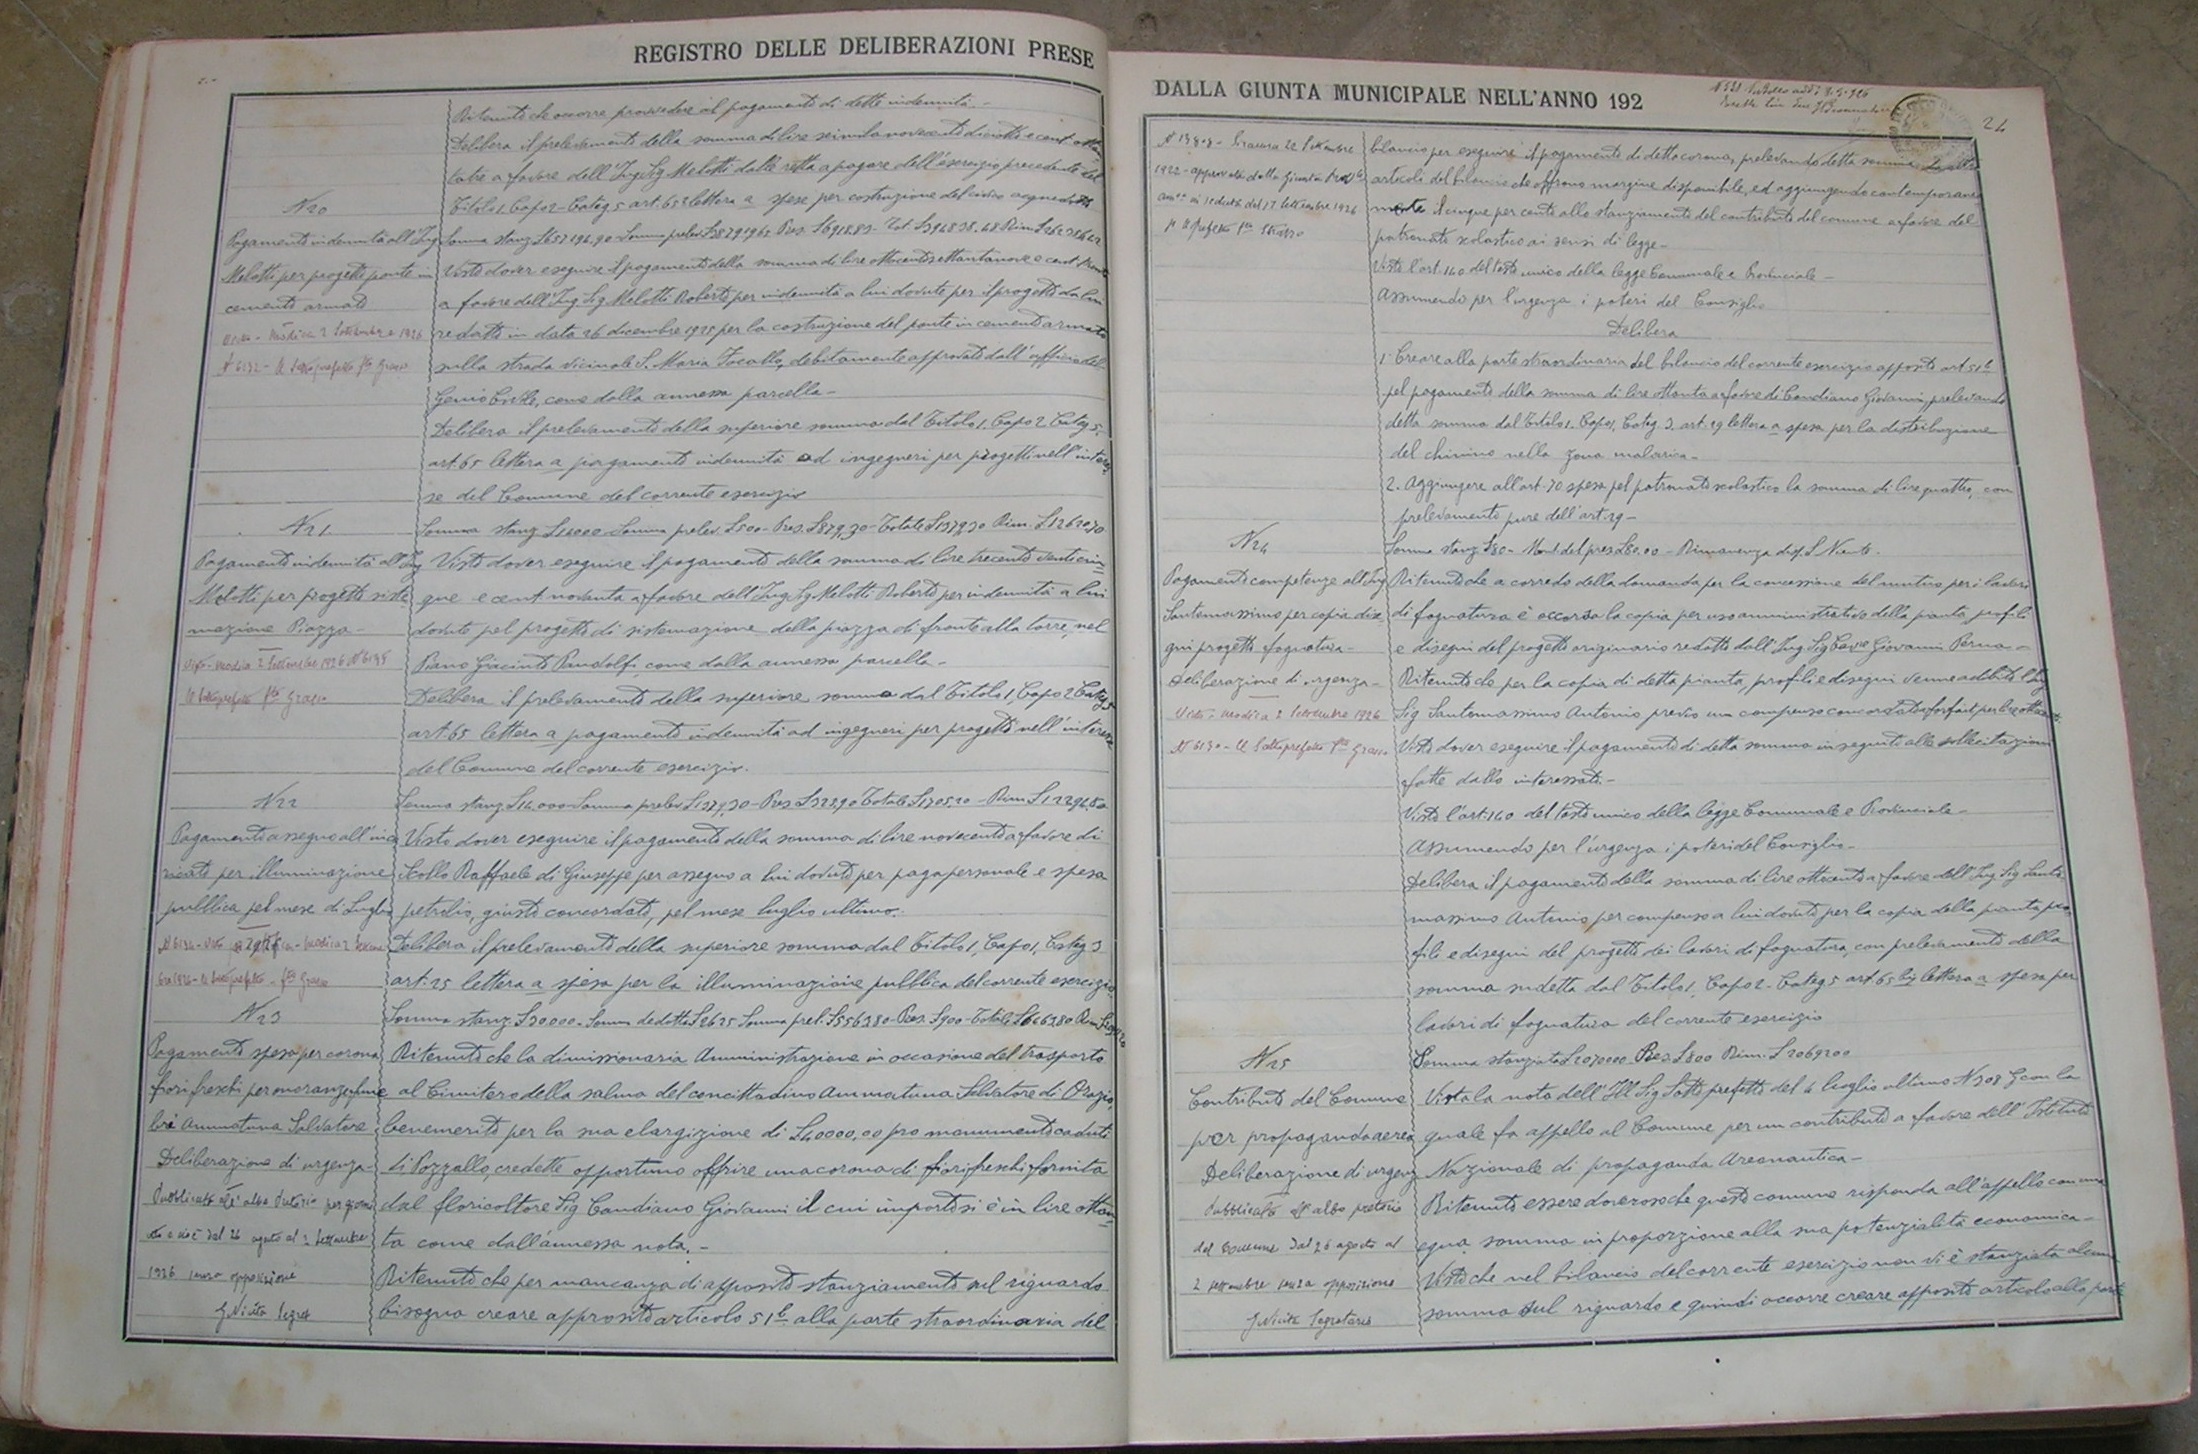 REGISTRO DELLE DELIBERAZIONI PRESE
Ritenuto che occorre provvedere al pagamento di dette indennità -
Delibera il prelevamento della somma di lire seimilanovecentodiciotto e cent. ottan
tatre a favore dell'Ing. Sig. Melotti dalle a pagare dell'esercizio precedente del
N 20
Titolo 1. Capo 2 - Categ. 5 art. 65 lettera a spese per costruzione del civico acquedotto
Pagamento indennità all'Ing
Melotti per progetto ponte in
cemento armato
Visto - Modica 2 Settembre 1926
N° 6132 - Il Sottoprefetto fto Grasso
Visto dover eseguire il pagamento della somma di lire ottocentosettantanove e cent. trenta
a favore dell'Ing. Sig. Melotti Roberto per indennità a lui dovute per il progetto da lui
redatto in data 26 dicembre 1925 per la costruzione del ponte in cemento armato
sulla strada vicinale S. Maria Focallo, debitamente approvato dall'ufficio del
Genio Civile, come dalla annessa parcella -
Delibera il prelevamento della superiore somma dal Titolo 1. Capo 2 Categ. 5.
art. 65 lettera a pagamento indennità ad ingegneri per progetti nell'interes
se del Comune del corrente esercizio
N 21
Somma stanz. £ 14000 - Somma prelev. £ 500 - Pres. £ 879,30 - Totale £ 1379,30 Rim. £ 12620,70
Pagamento indennità all'Ing
Melotti per progetto siste
mazione Piazza -
Visto - Modica 2 Settembre 1926 N° 6135
Il Sottoprefetto fto Grasso
Visto dover eseguire il pagamento della somma di lire trecentoventicin
que e cent. novanta a favore dell'Ing. Sig. Melotti Roberto per indennità a lui
dovute pel progetto di sistemazione della piazza di fronte alla torre, nel
Piano Giacinto Pandolfi, come dalla annessa parcella -
Delibera il prelevamento della superiore somma dal Titolo 1, Capo 2 Categ. 5
art. 65 lettera a pagamento indennità ad ingegneri per progetti nell'interesse
del Comune del corrente esercizio.
N 22
Somma stanz. £ 14.000 - Somma prelev. £ 1379,30 - Pres. £ 325,90 Totale £ 1705,20 - Rim. £ 12294,80
Pagamento assegno all'inca
ricato per illuminazione
pubblica pel mese di Luglio
N° 6134 - Visto - Modica 2 Settem
bre 1926 - Il Sottoprefetto - fto Grasso
Visto dover eseguire il pagamento della somma di lire novecento a favore di
Raffaele di Giuseppe per assegno a lui dovuto per paga personale e spesa
petrolio, giusto concordato, pel mese luglio ultimo.
Delibera il prelevamento della superiore somma dal Titolo 1, Capo 1, Categ. 3
art. 25 lettera a spesa per la illuminazione pubblica del corrente esercizio
N 23
Somma stanz. £ 30.000 - Somm. dedotta £ 2625 Somma prel. £ 5563,80 - Pres. £ 900 - Totale £ 6463,80
Pagamento spesa per corona
fiori freschi, per onoranze fune
bri Ammatuna Salvatore
Deliberazione di urgenza
Pubblicato all'albo Pretorio per giorni
otto e cioè dal 26 agosto al 2 Settembre
1926 senza opposizione
G. Nicita Segret
Ritenuto che la dimissionaria Amministrazione in occasione del trasporto
al Cimitero della salma del concittadino Ammatuna Salvatore di Orazio,
benemerito per la sua elargizione di £ 40000,00 pro monumento caduti
di Pozzallo, credette opportuno offrire una corona di fiori freschi fornita
dal floricoltore Sig. Candiano Giovanni il cui importo si è in lire ottan
ta come dall'annessa nota. -
Ritenuto che per mancanza di apposito stanziamento sul riguardo
bisogna creare apposito articolo 51 b alla parte straordinaria del
DALLA GIUNTA MUNICIPALE NELL'ANNO 192
24
Siracusa 22 Settembre
1922 - approvato dalla Giunta
in seduta del 17 Settembre 1926
bilancio per eseguire il pagamento di detta corona, prelevando detta somma da altri
articoli del bilancio che offrono margine disponibile, ed aggiungendo contemporanea
mente il cinque per cento allo stanziamento del contributo del comune a favore del
patronato scolastico ai sensi di legge -
Visto l'art. 140 del testo unico della legge Comunale e Provinciale -
Assumendo per l'urgenza i poteri del Consiglio
Delibera
1. Creare alla parte straordinaria del bilancio del corrente esercizio apposito art. 51 b
pel pagamento della somma di lire ottanta a favore di Candiano Giovanni, prelevando
detta somma dal Titolo 1. Capo 1, Categ. 3. art. 29 lettera a spesa per la distribuzione
del chinino nella zona malarica -
2. Aggiungere all'art. 70 spesa pel patronato scolastico la somma di lire quattro, con
prelevamento pure dell'art. 29 -
N 24
Somma stanz. £ 80 - Mont. del pres. £ 80.00 - Rimanenza disp. £ Niente.
Pagamento competenze all'Ing
Santomassimo per copia dise
gni progetto fognatura -
Deliberazione di urgenza -
Visto - Modica 2 Settembre 1926
N° 6130 - Il Sottoprefetto fto Grasso
Ritenuto che a corredo della domanda per la concessione del mutuo per i lavori
di fognatura è occorsa la copia per uso amministrativo della pianta, profili
e disegni del progetto originario redatto dall'Ing. Sig. Cav. Giovanni Perna -
Ritenuto che per la copia di detta pianta, profili e disegni venne adibito l'Ing
Sig. Santomassimo Antonio previo un compenso concordato a forfait per lire ottocento.
Visto dover eseguire il pagamento di detta somma in seguito alle sollecitazioni
fatte dallo interessato -
Visto l'art. 140 del testo unico della legge Comunale e Provinciale -
Assumendo per l'urgenza i poteri del Consiglio -
Delibera il pagamento della somma di lire ottocento a favore dell'Ing. Sig. Santo
massimo Antonio per compenso a lui dovuto per la copia della pianta pro
fili e disegni del progetto dei lavori di fognatura, con prelevamento della
somma sudetta dal Titolo 1, Capo 2 - Categ. 5 art. 65 bis lettera a spesa per
lavori di fognatura del corrente esercizio
N 25
Somma stanziata £ 207000 Pres. £ 800 Rim. £ 206200
Contributo del Comune
per propaganda aerea
Deliberazione di urgenz
Pubblicato all'albo pretorio
del Comune dal 26 agosto al
2 settembre senza opposizione
G. Nicita Segretario
Vista la nota dell'Ill. Sig. Sottoprefetto del 4 luglio ultimo N 308 G con la
quale fa appello al Comune per un contributo a favore dell'Istituto
Nazionale di propaganda Areonautica -
Ritenuto essere doveroso che questo comune risponda all'appello con una
equa somma in proporzione alla sua potenzialità economica -
Visto che nel bilancio del corrente esercizio non vi è stanziata alcuna
somma sul riguardo e quindi occorre creare apposito articolo alla parte